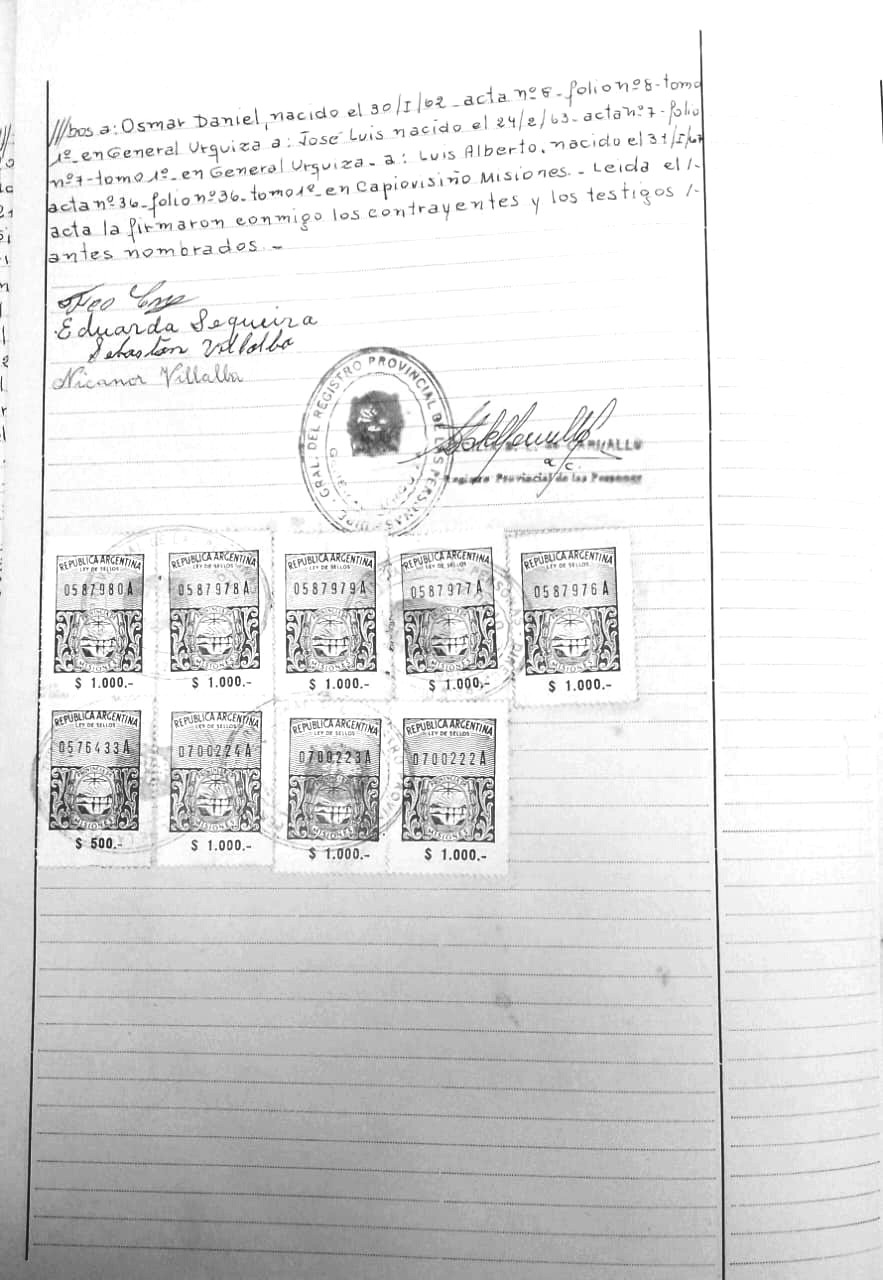 ///bos a: Osmar Daniel, nacido el 30/I/62 - acta nº 8 - folio nº 8 - tomo
1º - en General Urquiza a: José Luis nacido el 24/2/63 - acta nº 7 - folio
nº 7 - tomo 1º - en General Urquiza - a: Luis Alberto, nacido el 31/I/67
acta nº 36 - folio nº 36 - tomo 1º - en Capiovisiño Misiones. - Leida el /-
acta la firmaron conmigo los contrayentes y los testigos /-
antes nombrados -
Feo
Eduarda Sequeira
Sebastian Villalba
Nicanor Villalba
GRAL. DEL REGISTRO PROVINCIAL DE LAS PERSONAS
a/c.
Registro Provincial de las Personas
REPUBLICA ARGENTINA
LEY DE SELLOS
0587980A
MISIONES
$ 1.000.-
REPUBLICA ARGENTINA
LEY DE SELLOS
0587978A
MISIONES
$ 1.000.-
REPUBLICA ARGENTINA
LEY DE SELLOS
0587979A
MISIONES
$ 1.000.-
REPUBLICA ARGENTINA
LEY DE SELLOS
0587977A
MISIONES
$ 1.000.-
REPUBLICA ARGENTINA
LEY DE SELLOS
0587976A
MISIONES
$ 1.000.-
REPUBLICA ARGENTINA
LEY DE SELLOS
0576433A
MISIONES
$ 500.-
REPUBLICA ARGENTINA
LEY DE SELLOS
0700224A
MISIONES
$ 1.000.-
REPUBLICA ARGENTINA
LEY DE SELLOS
0700223A
MISIONES
$ 1.000.-
REPUBLICA ARGENTINA
LEY DE SELLOS
0700222A
MISIONES
$ 1.000.-